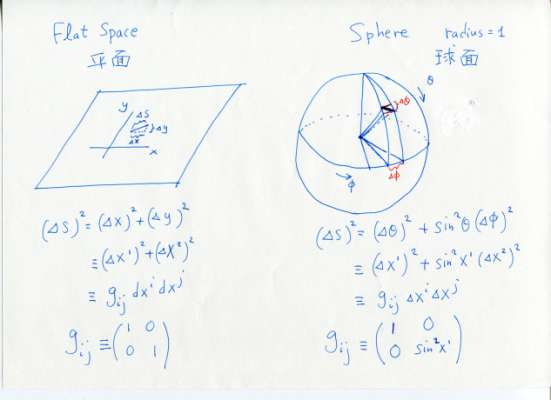 Flat Space
平面
y
ΔS
Δy
Δx
x
(ΔS)² = (Δx)² + (Δy)²
≡ (Δx¹)² + (Δx²)²
≡ gij dxⁱ dxʲ
gij ≡ (1 0
0 1)
Sphere radius = 1
球面
θ
Δθ
Δϕ
ϕ
(ΔS)² = (Δθ)² + sin²θ (Δϕ)²
≡ (Δx¹)² + sin²x¹ (Δx²)²
≡ gij Δxⁱ Δxʲ
gij ≡ (1 0
0 sin²x¹)